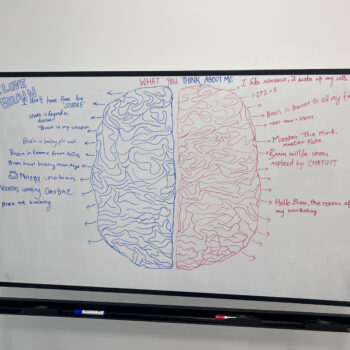 I LOVE
BRAIN
WHAT YOU THINK ABOUT ME
I don't have time for
"STROKE"
Stroke is beyond a
disease
Brain is my weapon
Brain is
Brain in Exams Error 404
Brain is not braining these days
No eeg, no brain
Neurons working Overtime
Brain not available
I like nonsense, it wakes up my cells
1+2=5
Brain is Barrier to all my
Master The Mind,
master Fate
Brain will be soon
replaced by CHATGPT
Hello Brain, the reason of
my overthinking